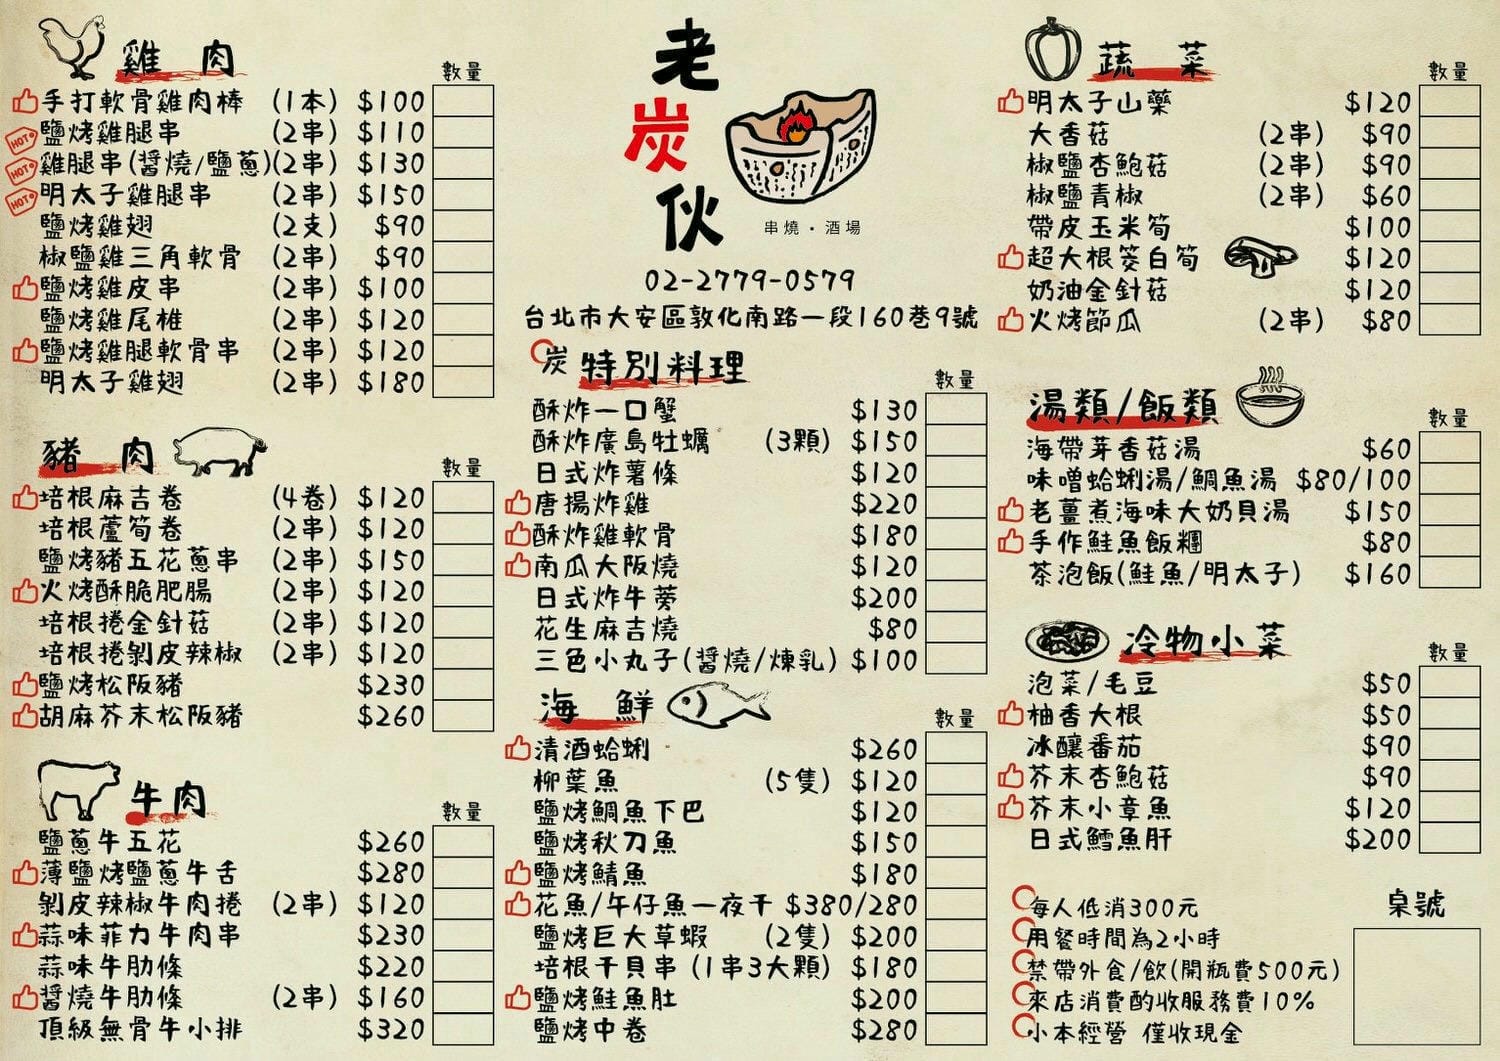 雞 肉
數量
手打軟骨雞肉棒 (1本) $100
HOT 鹽烤雞腿串 (2串) $110
HOT 雞腿串(醬燒/鹽蔥)(2串) $130
HOT 明太子雞腿串 (2串) $150
鹽烤雞翅 (2支) $90
椒鹽雞三角軟骨 (2串) $90
鹽烤雞皮串 (2串) $100
鹽烤雞尾椎 (2串) $120
鹽烤雞腿軟骨串 (2串) $120
明太子雞翅 (2串) $180
豬 肉
數量
培根麻吉卷 (4卷) $120
培根蘆筍卷 (2串) $120
鹽烤豬五花蔥串 (2串) $150
火烤酥脆肥腸 (2串) $120
培根捲金針菇 (2串) $120
培根捲剝皮辣椒 (2串) $120
鹽烤松阪豬 $230
胡麻芥末松阪豬 $260
牛肉
數量
鹽蔥牛五花 $260
薄鹽烤鹽蔥牛舌 $280
剝皮辣椒牛肉捲 (2串) $120
蒜味菲力牛肉串 $230
蒜味牛肋條 $220
醬燒牛肋條 (2串) $160
頂級無骨牛小排 $320
老炭伙
串燒·酒場
02-2779-0579
台北市大安區敦化南路一段160巷9號
炭 特別料理
數量
酥炸一口蟹 $130
酥炸廣島牡蠣 (3顆) $150
日式炸薯條 $120
唐揚炸雞 $220
酥炸雞軟骨 $180
南瓜大阪燒 $120
日式炸牛蒡 $200
花生麻吉燒 $80
三色小丸子(醬燒/煉乳) $100
海 鮮
數量
清酒蛤蜊 $260
柳葉魚 (5隻) $120
鹽烤鯛魚下巴 $120
鹽烤秋刀魚 $150
鹽烤鯖魚 $180
花魚/午仔魚一夜干 $380/280
鹽烤巨大草蝦 (2隻) $200
培根干貝串 (1串3大顆) $180
鹽烤鮭魚肚 $200
鹽烤中卷 $280
蔬 菜
數量
明太子山藥 $120
大香菇 (2串) $90
椒鹽杏鮑菇 (2串) $90
椒鹽青椒 (2串) $60
帶皮玉米筍 $100
超大根筊白筍 $120
奶油金針菇 $120
火烤節瓜 (2串) $80
湯類/飯類
數量
海帶芽香菇湯 $60
味噌蛤蜊湯/鯛魚湯 $80/100
老薑煮海味大奶貝湯 $150
手作鮭魚飯糰 $80
茶泡飯(鮭魚/明太子) $160
冷物小菜
數量
泡菜/毛豆 $50
柚香大根 $50
冰釀番茄 $90
芥末杏鮑菇 $90
芥末小章魚 $120
日式鱈魚肝 $200
每人低消300元
用餐時間為2小時
禁帶外食/飲(開瓶費500元)
來店消費酌收服務費10%
小本經營 僅收現金
桌號